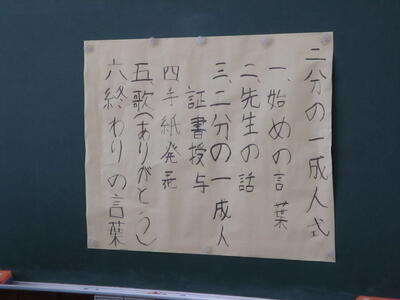 二分の一成人式
一、始めの言葉
二、先生の話
三、二分の一成人
証書授与
四手紙発表
五、歌(ありがとう)
六終わりの言葉